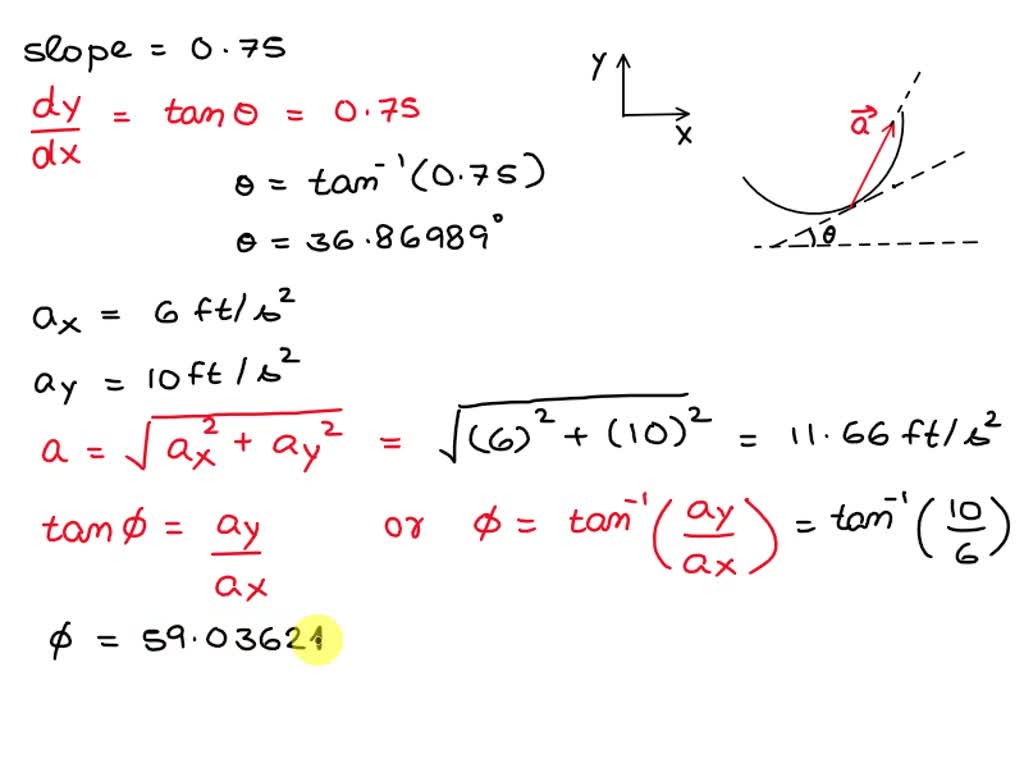 slope = 0.75
dy/dx = tan θ = 0.75
θ = tan⁻¹(0.75)
θ = 36.86989°
Y
X
a⃗
θ
ax = 6 ft/s²
ay = 10 ft/s²
a = √(ax² + ay²) = √((6)² + (10)²) = 11.66 ft/s²
tan ϕ = ay/ax or ϕ = tan⁻¹(ay/ax) = tan⁻¹(10/6)
ϕ = 59.03621